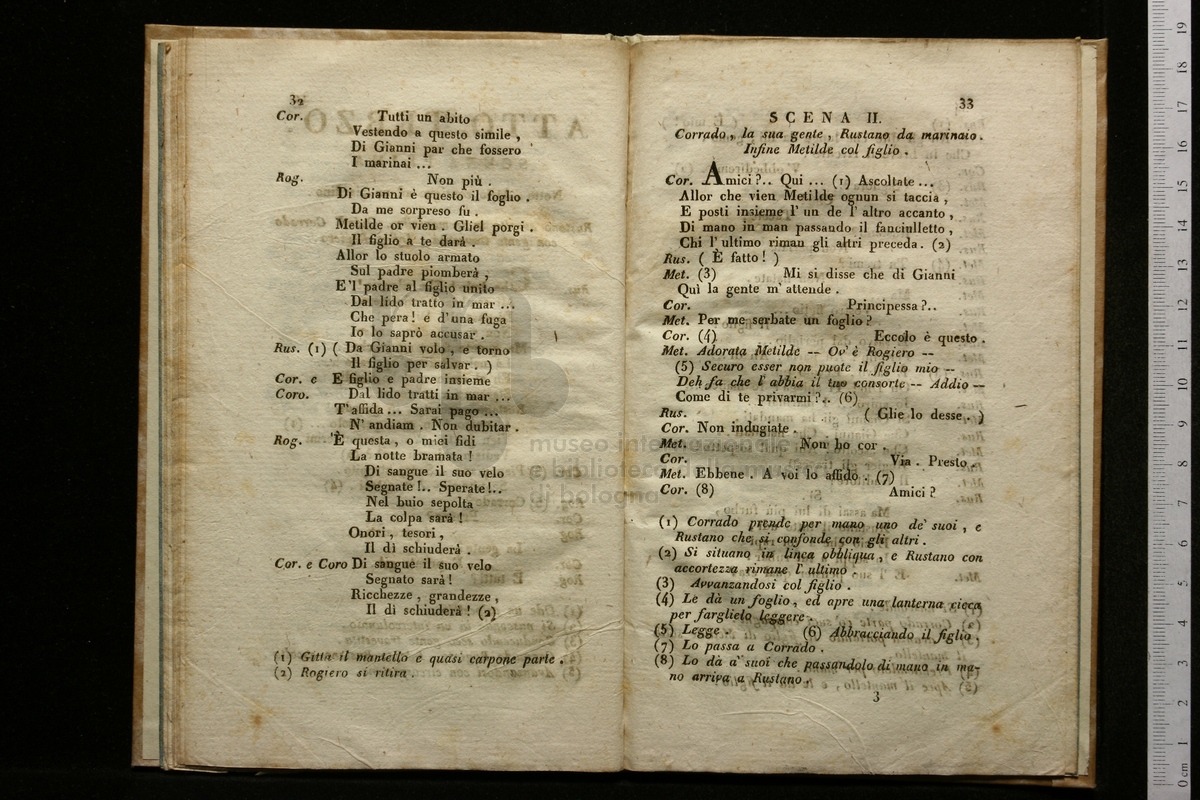 32
Cor. Tutti un abito
Vestendo a questo simile ,
Di Gianni par che fossero
I marinai ...
Rog. Non più .
Di Gianni è questo il foglio .
Da me sorpreso fu .
Metilde or vien . Gliel porgi .
Il figlio a te darà .
Allor lo stuolo armato
Sul padre piomberà ,
E'l padre al figlio unito
Dal lido tratto in mar ...
Che pera ! e d'una fuga
Io lo saprò accusar .
Rus. (1) ( Da Gianni volo , e torno
Il figlio per salvar . )
Cor. e E figlio e padre insieme
Coro. Dal lido tratti in mar ...
T'affida ... Sarai pago ...
N' andiam . Non dubitar .
Rog. È questa , o miei fidi
La notte bramata !
Di sangue il suo velo
Segnate !.. Sperate !..
Nel buio sepolta
La colpa sarà !
Onori , tesori ,
Il dì schiuderà .
Cor. e Coro Di sangue il suo velo
Segnato sarà !
Ricchezze , grandezze ,
Il dì schiuderà ! (2)
(1) Gitta il mantello e quasi carpone parte .
(2) Rogiero si ritira .
33
SCENA II.
Corrado , la sua gente , Rustano da marinaio .
Infine Metilde col figlio .
Cor. Amici ?.. Qui ... (1) Ascoltate ...
Allor che vien Metilde ognun si taccia ,
E posti insieme l' un de l' altro accanto ,
Di mano in man passando il fanciulletto ,
Chi l' ultimo riman gli altri preceda . (2)
Rus. ( È fatto ! )
Met. (3) Mi si disse che di Gianni
Quì la gente m' attende .
Cor. Principessa ?..
Met. Per me serbate un foglio ?
Cor. (4) Eccolo è questo .
Met. Adorata Metilde -- Ov' è Rogiero --
(5) Securo esser non puote il figlio mio --
Deh fa che l' abbia il tuo consorte -- Addio --
Come di te privarmi ?.. (6)
Rus. ( Glie lo desse . )
Cor. Non indugiate .
Met. Non ho cor .
Cor. Via . Presto .
Met. Ebbene . A voi lo affido . (7)
Cor. (8) Amici ?
(1) Corrado prende per mano uno de' suoi , e
Rustano che si confonde con gli altri .
(2) Si situano in linea obbliqua , e Rustano con
accortezza rimane l' ultimo .
(3) Avvanzandosi col figlio .
(4) Le dà un foglio , ed apre una lanterna cieca
per farglielo leggere .
(5) Legge . (6) Abbracciando il figlio .
(7) Lo passa a Corrado .
(8) Lo dà a' suoi che passandolo di mano in ma-
no arriva a Rustano .
3
museo internazionale
e biblioteca della musica
di bologna
0 cm 1 2 3 4 5 6 7 8 9 10 11 12 13 14 15 16 17 18 19